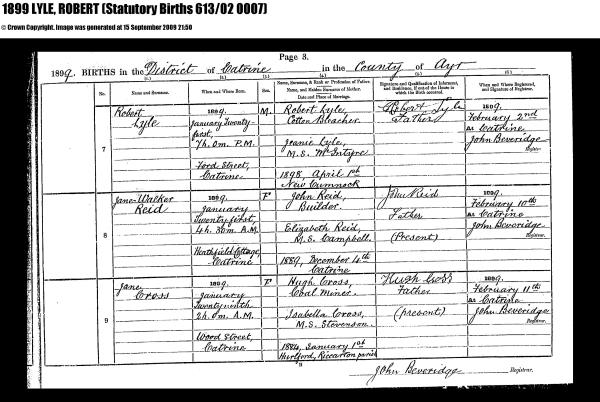 1899 LYLE, ROBERT (Statutory Births 613/02 0007)
© Crown Copyright. Image was generated at 15 September 2009 21:50
Page 3.
1899. BIRTHS in the District of Catrine in the County of Ayr
(1.) (2.) (3.) (4.) (5.) (6.)
No. Name and Surname. When and Where Born. Sex. Name, Surname, & Rank or Profession of Father. Name, and Maiden Surname of Mother. Date and Place of Marriage. Signature and Qualification of Informant, and Residence, if out of the House in which the Birth occurred. When and Where Registered, and Signature of Registrar.
7
Robert
Lyle
1899.
January Twenty-
first,
7h. 0m. P.M.
Ford Street,
Catrine
M.
Robert Lyle,
Cotton Bleacher.
Jeanie Lyle,
M.S. McIntyre
1898, April 1st
New Cumnock
Robert Lyle
Father
1899.
February 2nd
at Catrine
John Beveridge
Registrar.
8
Jane Walker
Reid
1899.
January
Twenty first,
4h. 30m. A.M.
Heathfield Cottage,
Catrine
F
John Reid,
Builder.
Elizabeth Reid,
M.S. Campbell.
1889, December 4th
Catrine
John Reid
Father
(Present)
1899.
February 10th
at Catrine
John Beveridge
Registrar.
9
Jane
Cross
1899.
January
2h. 0m. A.M.
Catrine
F
Hugh Cross,
Coal Miner.
Isabella Cross,
M.S. Stevenson.
1884, January 1st
Hurlford, Riccarton parish
Hugh Cross
Father
(present)
1899.
February 11th
at Catrine
John Beveridge
Registrar.
John Beveridge Registrar.